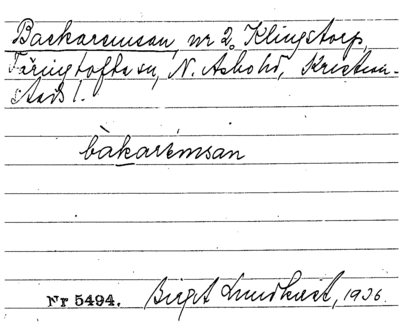 Backaremsan, nr 2 Klingstorp,
Färingtofta sn, N. Åsbohd, Kristian-
stads l.
bàkarémsan
Nr 5494. Birgit Lundkvist, 1936.